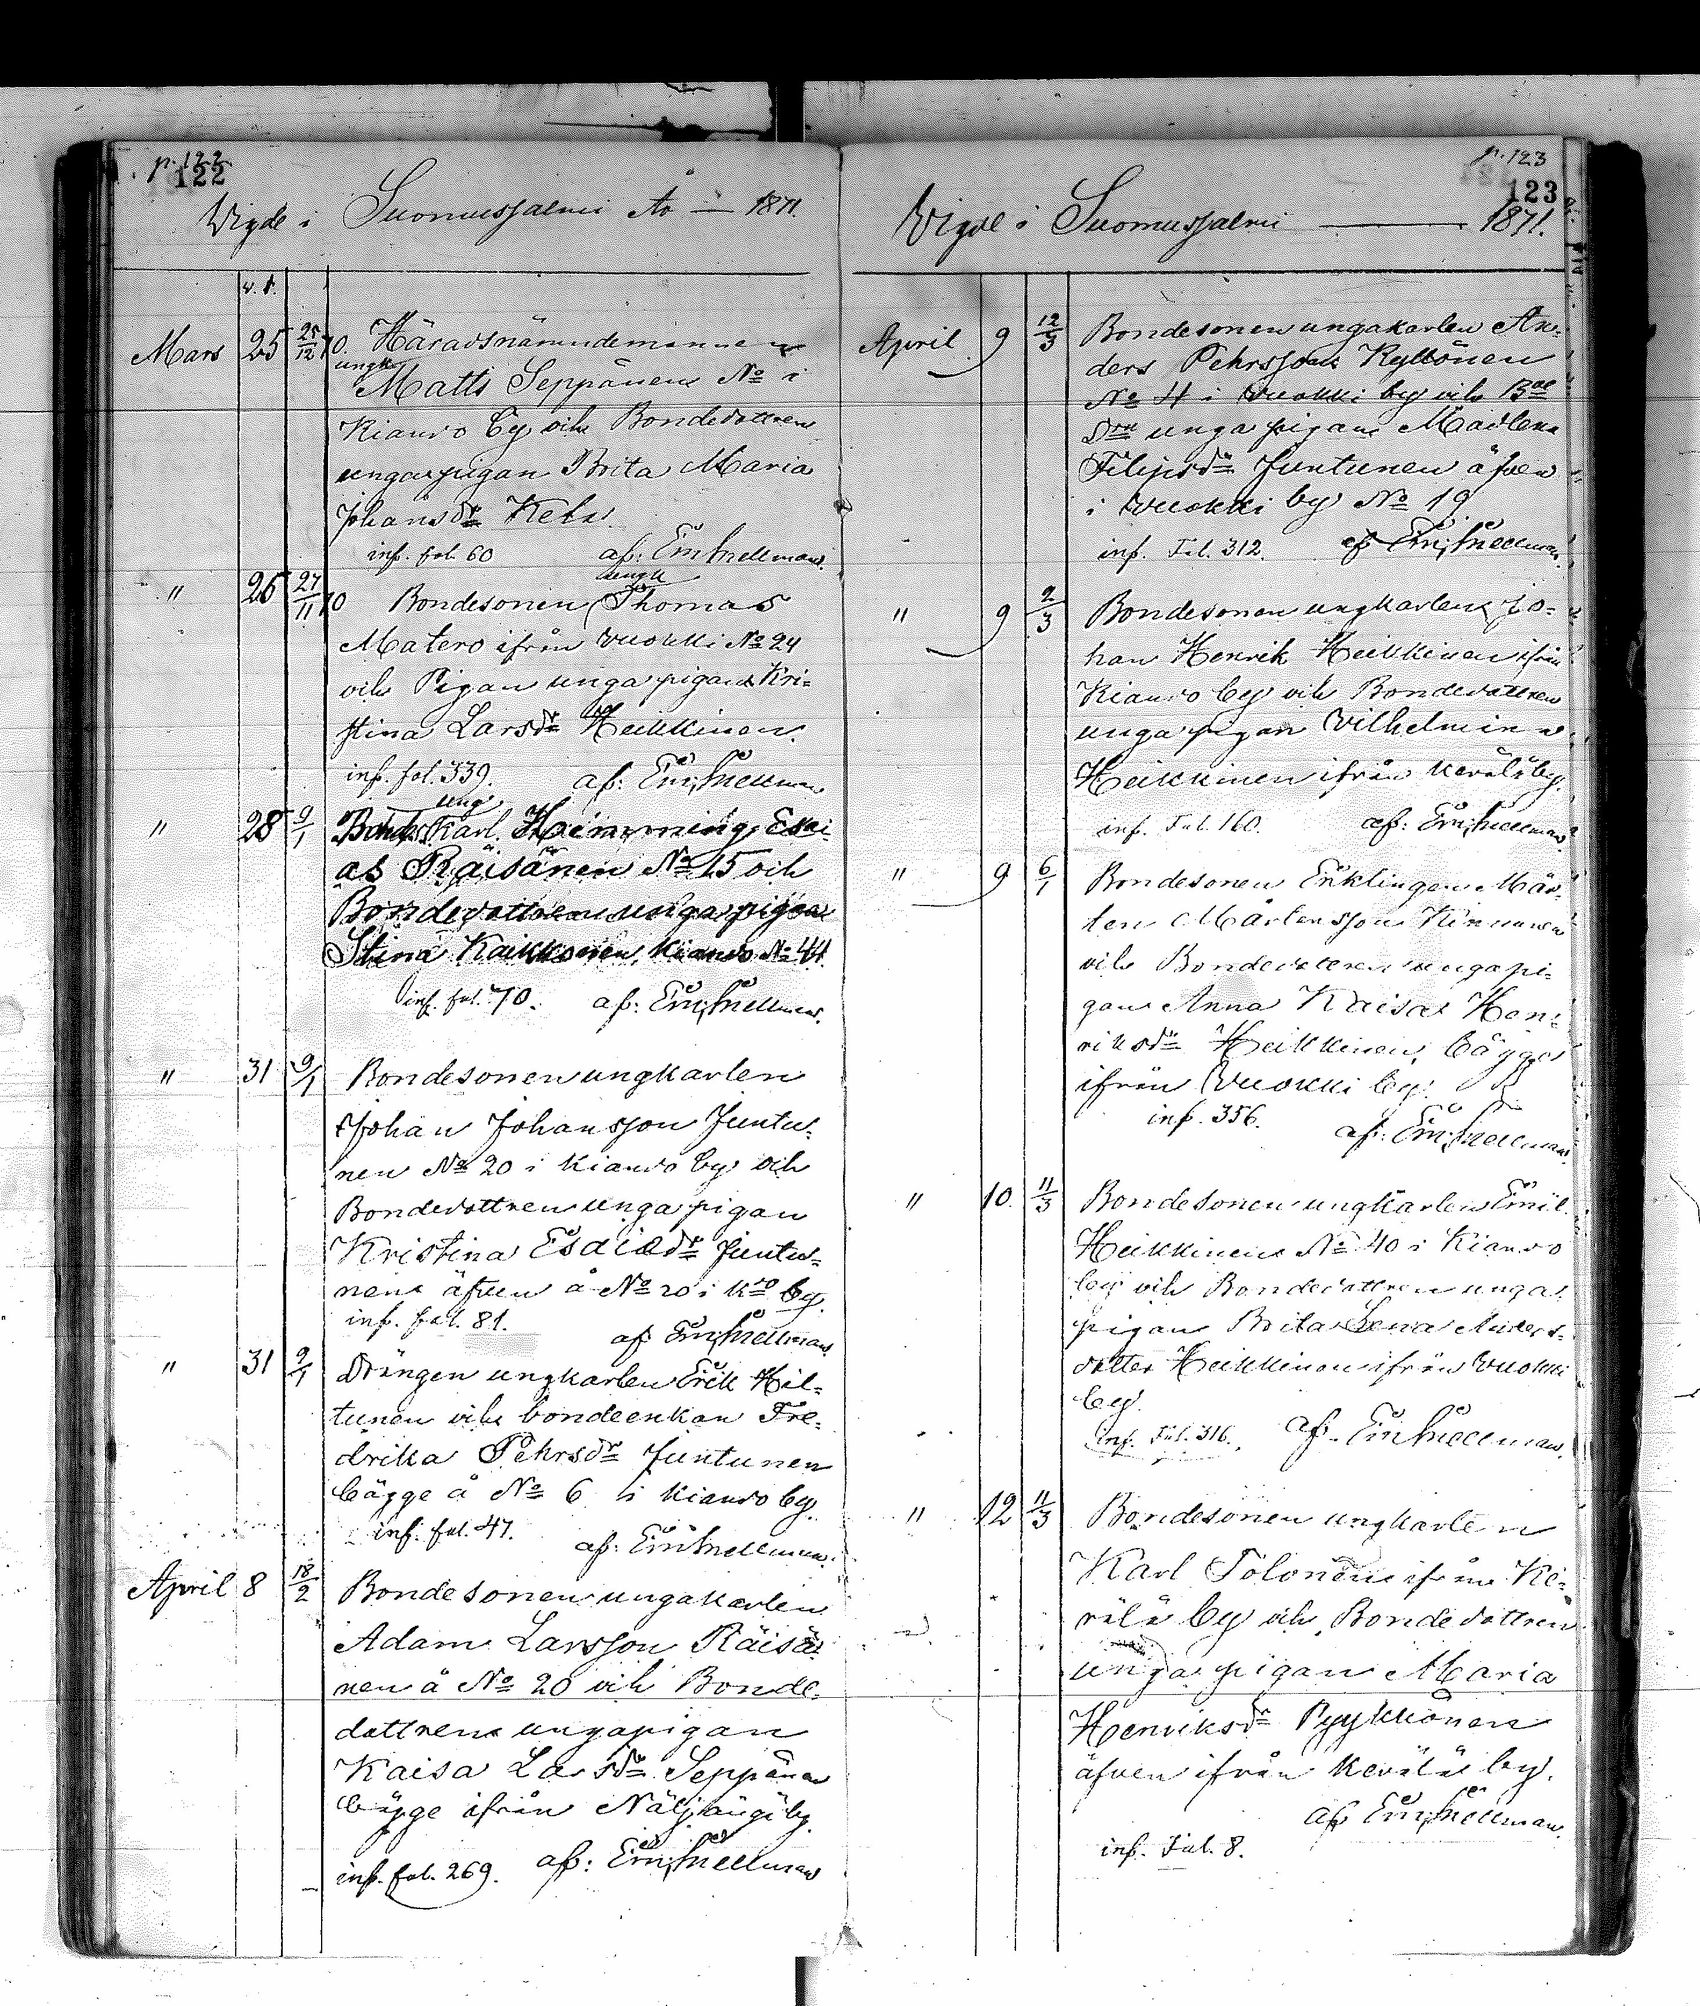 p. 122
122
Vigde i Suomussalmi År — 1871.
v. d.
Mars 25 25/12 70. Häradsnämndemannen
ungk.
Matts Seppänen No i
Kianro by och Bondedottren
unga pigan Brita Maria
Johansdr Kela.
inf. fol. 60 af: Em. Snellman.
ungk
" 26 27/11 70 Bondesonen Thomas
Matero ifrån Vuokki No 24
och Pigan unga pigan Kri-
stina Larsdr Heikkinen.
inf. fol. 339. af: Em. Snellman
ung
" 28 9/1 Bonds. Karl. Hemming Esai
as Räisänen No 15 och
Bondedottren unga pigan
Stina Kaikkonen, Kianro No 41
inf. fol. 70. af: Em. Snellman.
" 31 9/1 Bondesonen ungkarlen
Johan Johansson Juntu-
nen No 20 i Kianro by och
Bondedottren unga pigan
Kristina Esaiædr Juntu-
nen äfven å No 20 i Kro by.
inf. fol. 81. af Em. Snellman
" 31 9/1 Drängen ungkarlen Erik Hil-
tunen och bondeenkan Fre-
drika Pehrsdr Juntunen
bägge å No 6 i Kianro by.
inf. fol. 47. af: Em. Snellman.
April 8 18/2 Bondesonen ungakarlen
Adam Larsson Räisä-
nen å No 20 och Bonde-
dottren ungapigan
Kaisa Larsdr Seppänen
bägge ifrån Näljängi by.
inf. fol. 269. af: Em. Snellman
p. 123
123
Vigde i Suomussalmi — 1871.
April 9 12/3 Bondesonen ungakarlen An-
ders Pehrsson Kyllönen
No 4 i Vuokki by och Bde
drn unga pigan Madlena
Filipsdr Juntunen äfven
i Vuokki by No 19
inf. Fol. 312. af Em. Snellman.
" 9 2/3 Bondesonen ungkarlen Jo-
han Henrik Heikkinen ifrån
Kianro by och Bondedottren
unga pigan Vilhelmina
Heikkinen ifrån Kerälä by.
inf. Fol. 160. af: Em. Snellman.
" 9 6/1 Bondesonen Enklingen Mår-
ten Mårtensson Kinnunen
och Bondedottren unga pi-
gan Anna Kaisa Hen-
riksdr Heikkinen, bägge
ifrån Vuokki by.
inf. 356. af: Em. Snellman.
" 10. 11/3 Bondesonen ungkarlen Emil
Heikkinen No 40 i Kianro
by och Bondedottren unga
pigan Brita Lena Anders-
dotter Heikkinen ifrån Vuokki
by.
inf. Fol. 316. af. Em. Snellman.
" 12 11/3 Bondesonen ungkarlen
Karl Tolonen ifrån Ke-
rälä by och Bondedottren
unga pigan Maria
Henriksdr Pyykkönen
äfven ifrån Kerälä by.
af Em. Snellman.
inf. Fol. 8.